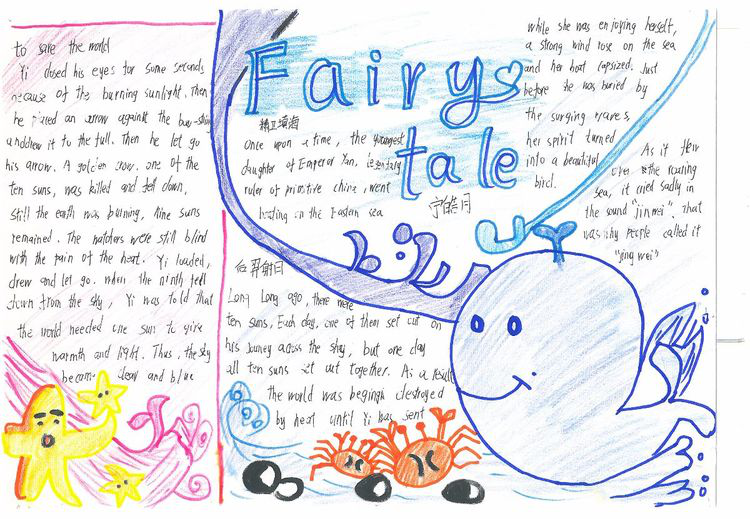 Fairy
tale
宁皓月
精卫填海
Once upon a time, the youngest
daughter of Emperor Yan, legendary
ruler of primitive china, went
boating on the Eastern sea
while she was enjoying herself,
a strong wind rose on the sea
and her boat capsized. Just
before she was buried by
the surging waves,
her spirit turned
into a beautiful
bird.
As it flew
over the roaring
sea, it cried sadly in
the sound "jinwei". That
was why people called it
"jing wei"
后羿射日
Long Long ago, there were
ten suns, Each day, one of them set out on
his Journey across the sky, but one day
all ten suns set out together. As a result
the world was begingh destroyed
by heat until Yi was sent
to save the world
Yi closed his eyes for some seconds
because of the burning sunlight. Then
he placed an arrow against the
anddrew it to the full. Then he let go
his arrow. A golden crow, one of the
ten suns, was killed and fell down,
Still the earth was burning, Nine suns
remained. The watchers were still blind
with the pain of the heat. Yi loaded,
drew and let go. when the ninth fell
down from the sky. Yi was told that
the world needed one sun to give
warmth and light. Thus, the sky
became clear and blue